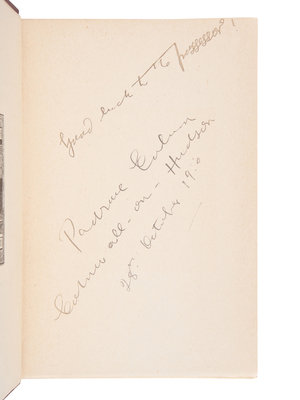 Good luck to the possessor!
Padraic Colum
Cornwall-on-Hudson
28th October 19